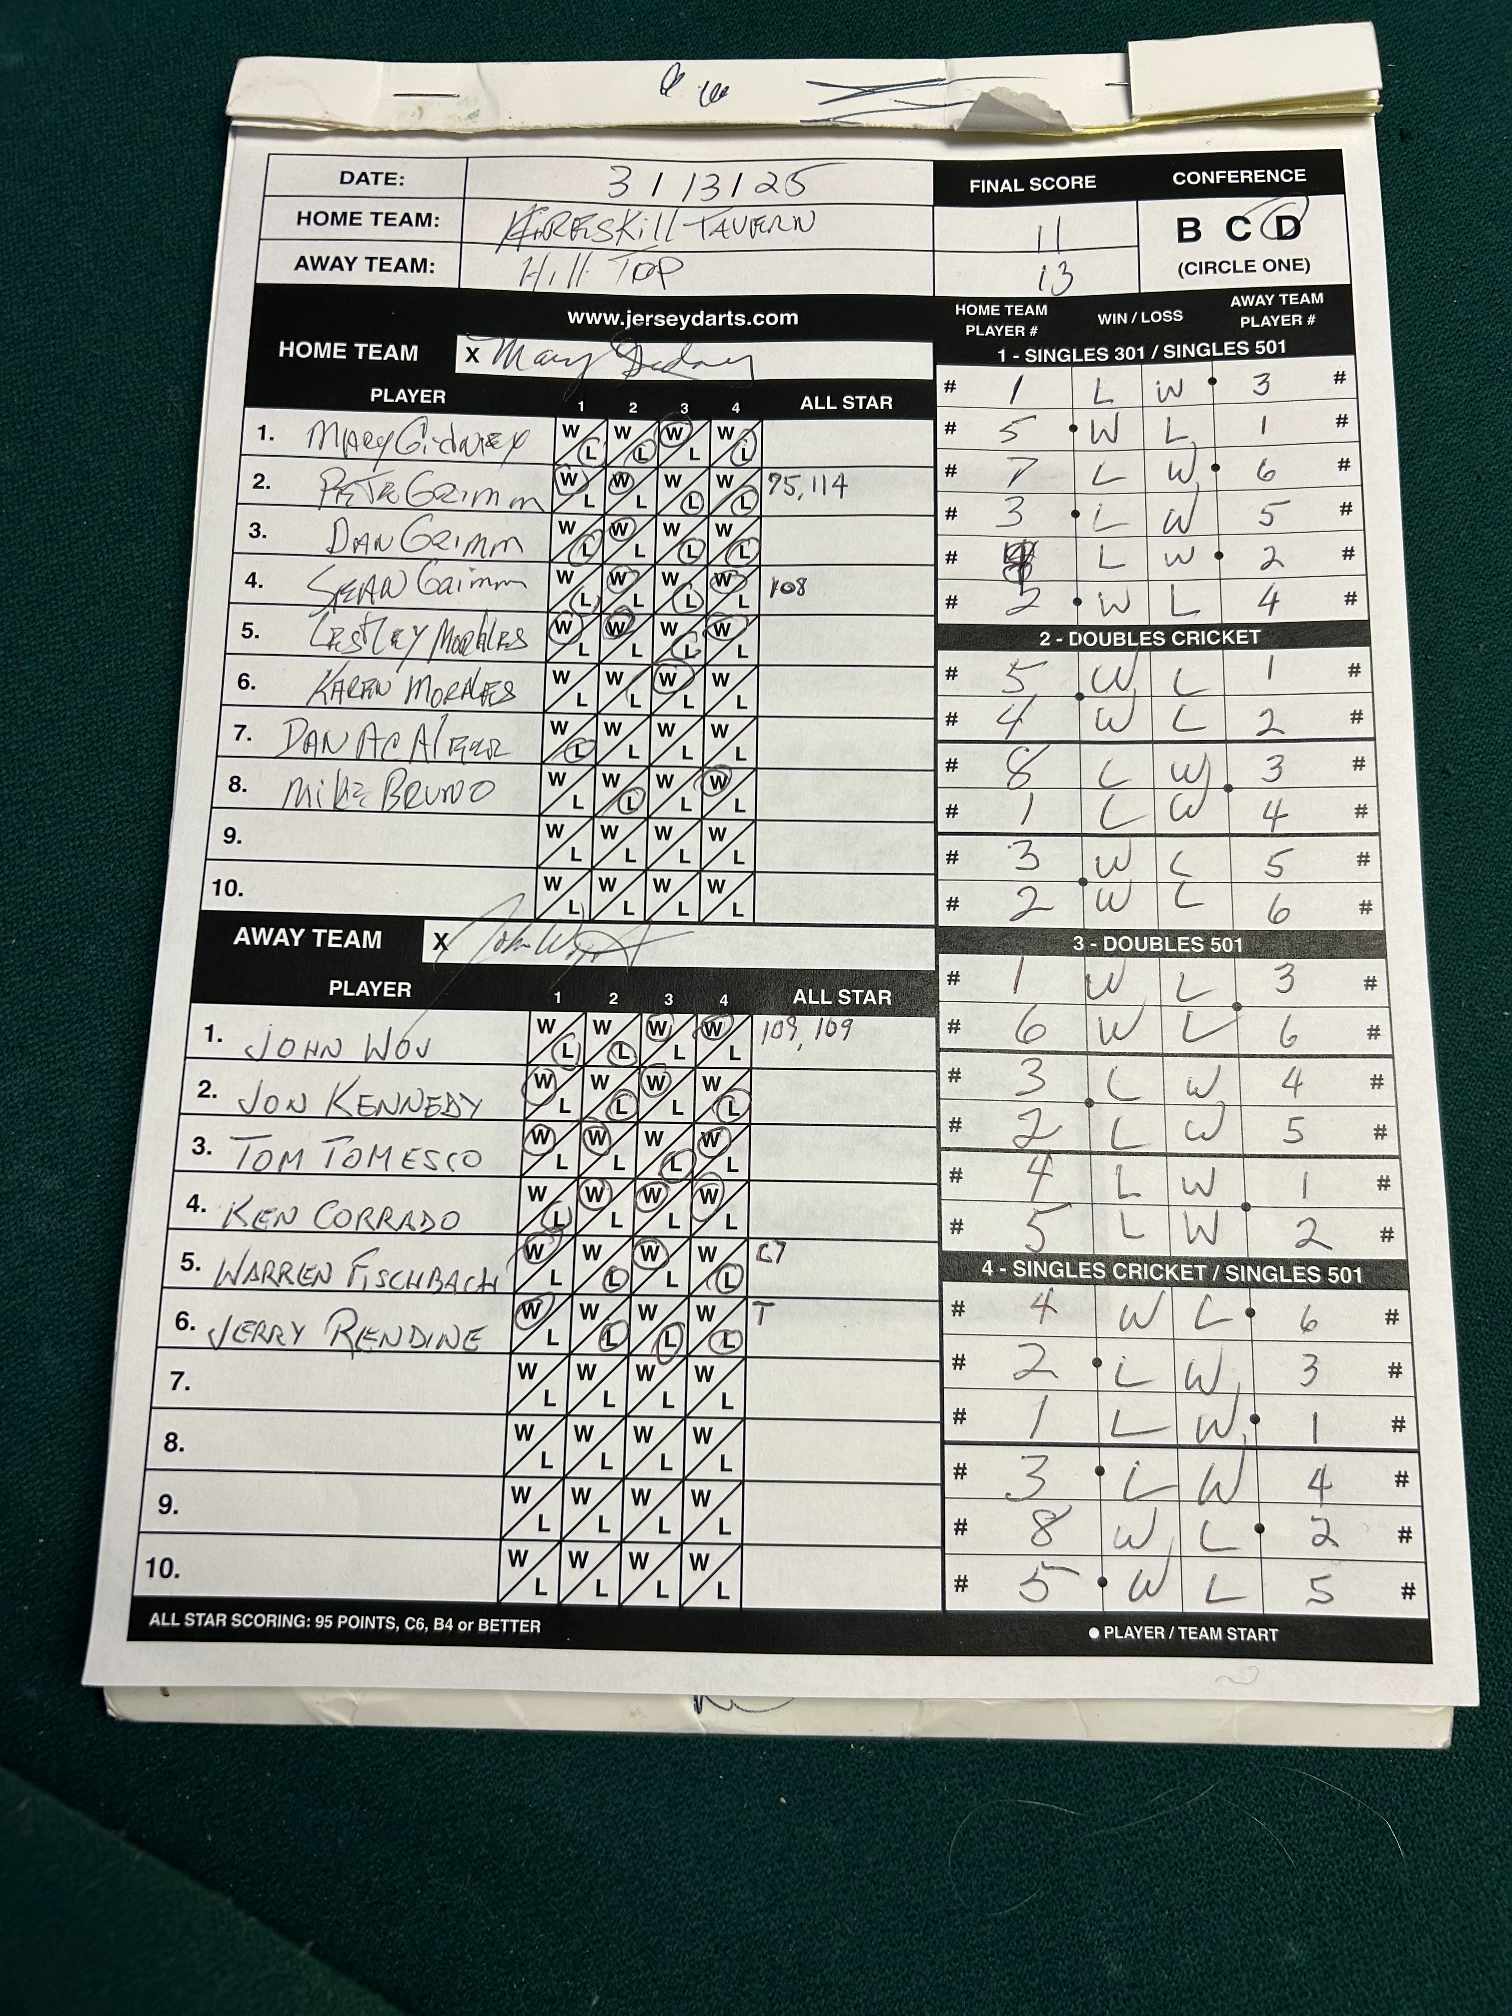 DATE: 3/13/25
HOME TEAM: KiRESKill TAVERN
AWAY TEAM: Hill TOP
FINAL SCORE
11
13
CONFERENCE
B C D
(CIRCLE ONE)
www.jerseydarts.com
HOME TEAM X Mary Gidney
PLAYER 1 2 3 4 ALL STAR
1. MARY GidNEY W L W L W L W L
2. PETE GRIMM W L W L W L W L 75, 114
3. DAN GRIMM W L W L W L W L
4. SEAN GRIMM W L W L W L W L 108
5. LESTLEY MORALES W L W L W L W L
6. KAREN MORALES W L W L W L W L
7. DAN W L W L W L W L
8. MIKE BRUNO W L W L W L W L
9. W L W L W L W L
10. W L W L W L W L
AWAY TEAM X John
PLAYER 1 2 3 4 ALL STAR
1. JOHN WOJ W L W L W L W L 109, 109
2. JON KENNEDY W L W L W L W L
3. TOM TOMESCO W L W L W L W L
4. KEN CORRADO W L W L W L W L
5. WARREN FISCHBACH W L W L W L W L C7
6. JERRY RENDINE W L W L W L W L T
7. W L W L W L W L
8. W L W L W L W L
9. W L W L W L W L
10. W L W L W L W L
ALL STAR SCORING: 95 POINTS, C6, B4 or BETTER
HOME TEAM PLAYER # WIN / LOSS AWAY TEAM PLAYER #
1 - SINGLES 301 / SINGLES 501
# 1 L W 3 #
# 5 W L 1 #
# 7 L W 6 #
# 3 L W 5 #
# L W 2 #
# 2 W L 4 #
2 - DOUBLES CRICKET
# 5 W L 1 #
# 4 W L 2 #
# 8 L W 3 #
# 1 L W 4 #
# 3 W L 5 #
# 2 W L 6 #
3 - DOUBLES 501
# 1 W L 3 #
# 6 W L 6 #
# 3 L W 4 #
# 2 L W 5 #
# 4 L W 1 #
# 5 L W 2 #
4 - SINGLES CRICKET / SINGLES 501
# 4 W L 6 #
# 2 L W 3 #
# 1 L W 1 #
# 3 L W 4 #
# 8 W L 2 #
# 5 W L 5 #
PLAYER / TEAM START